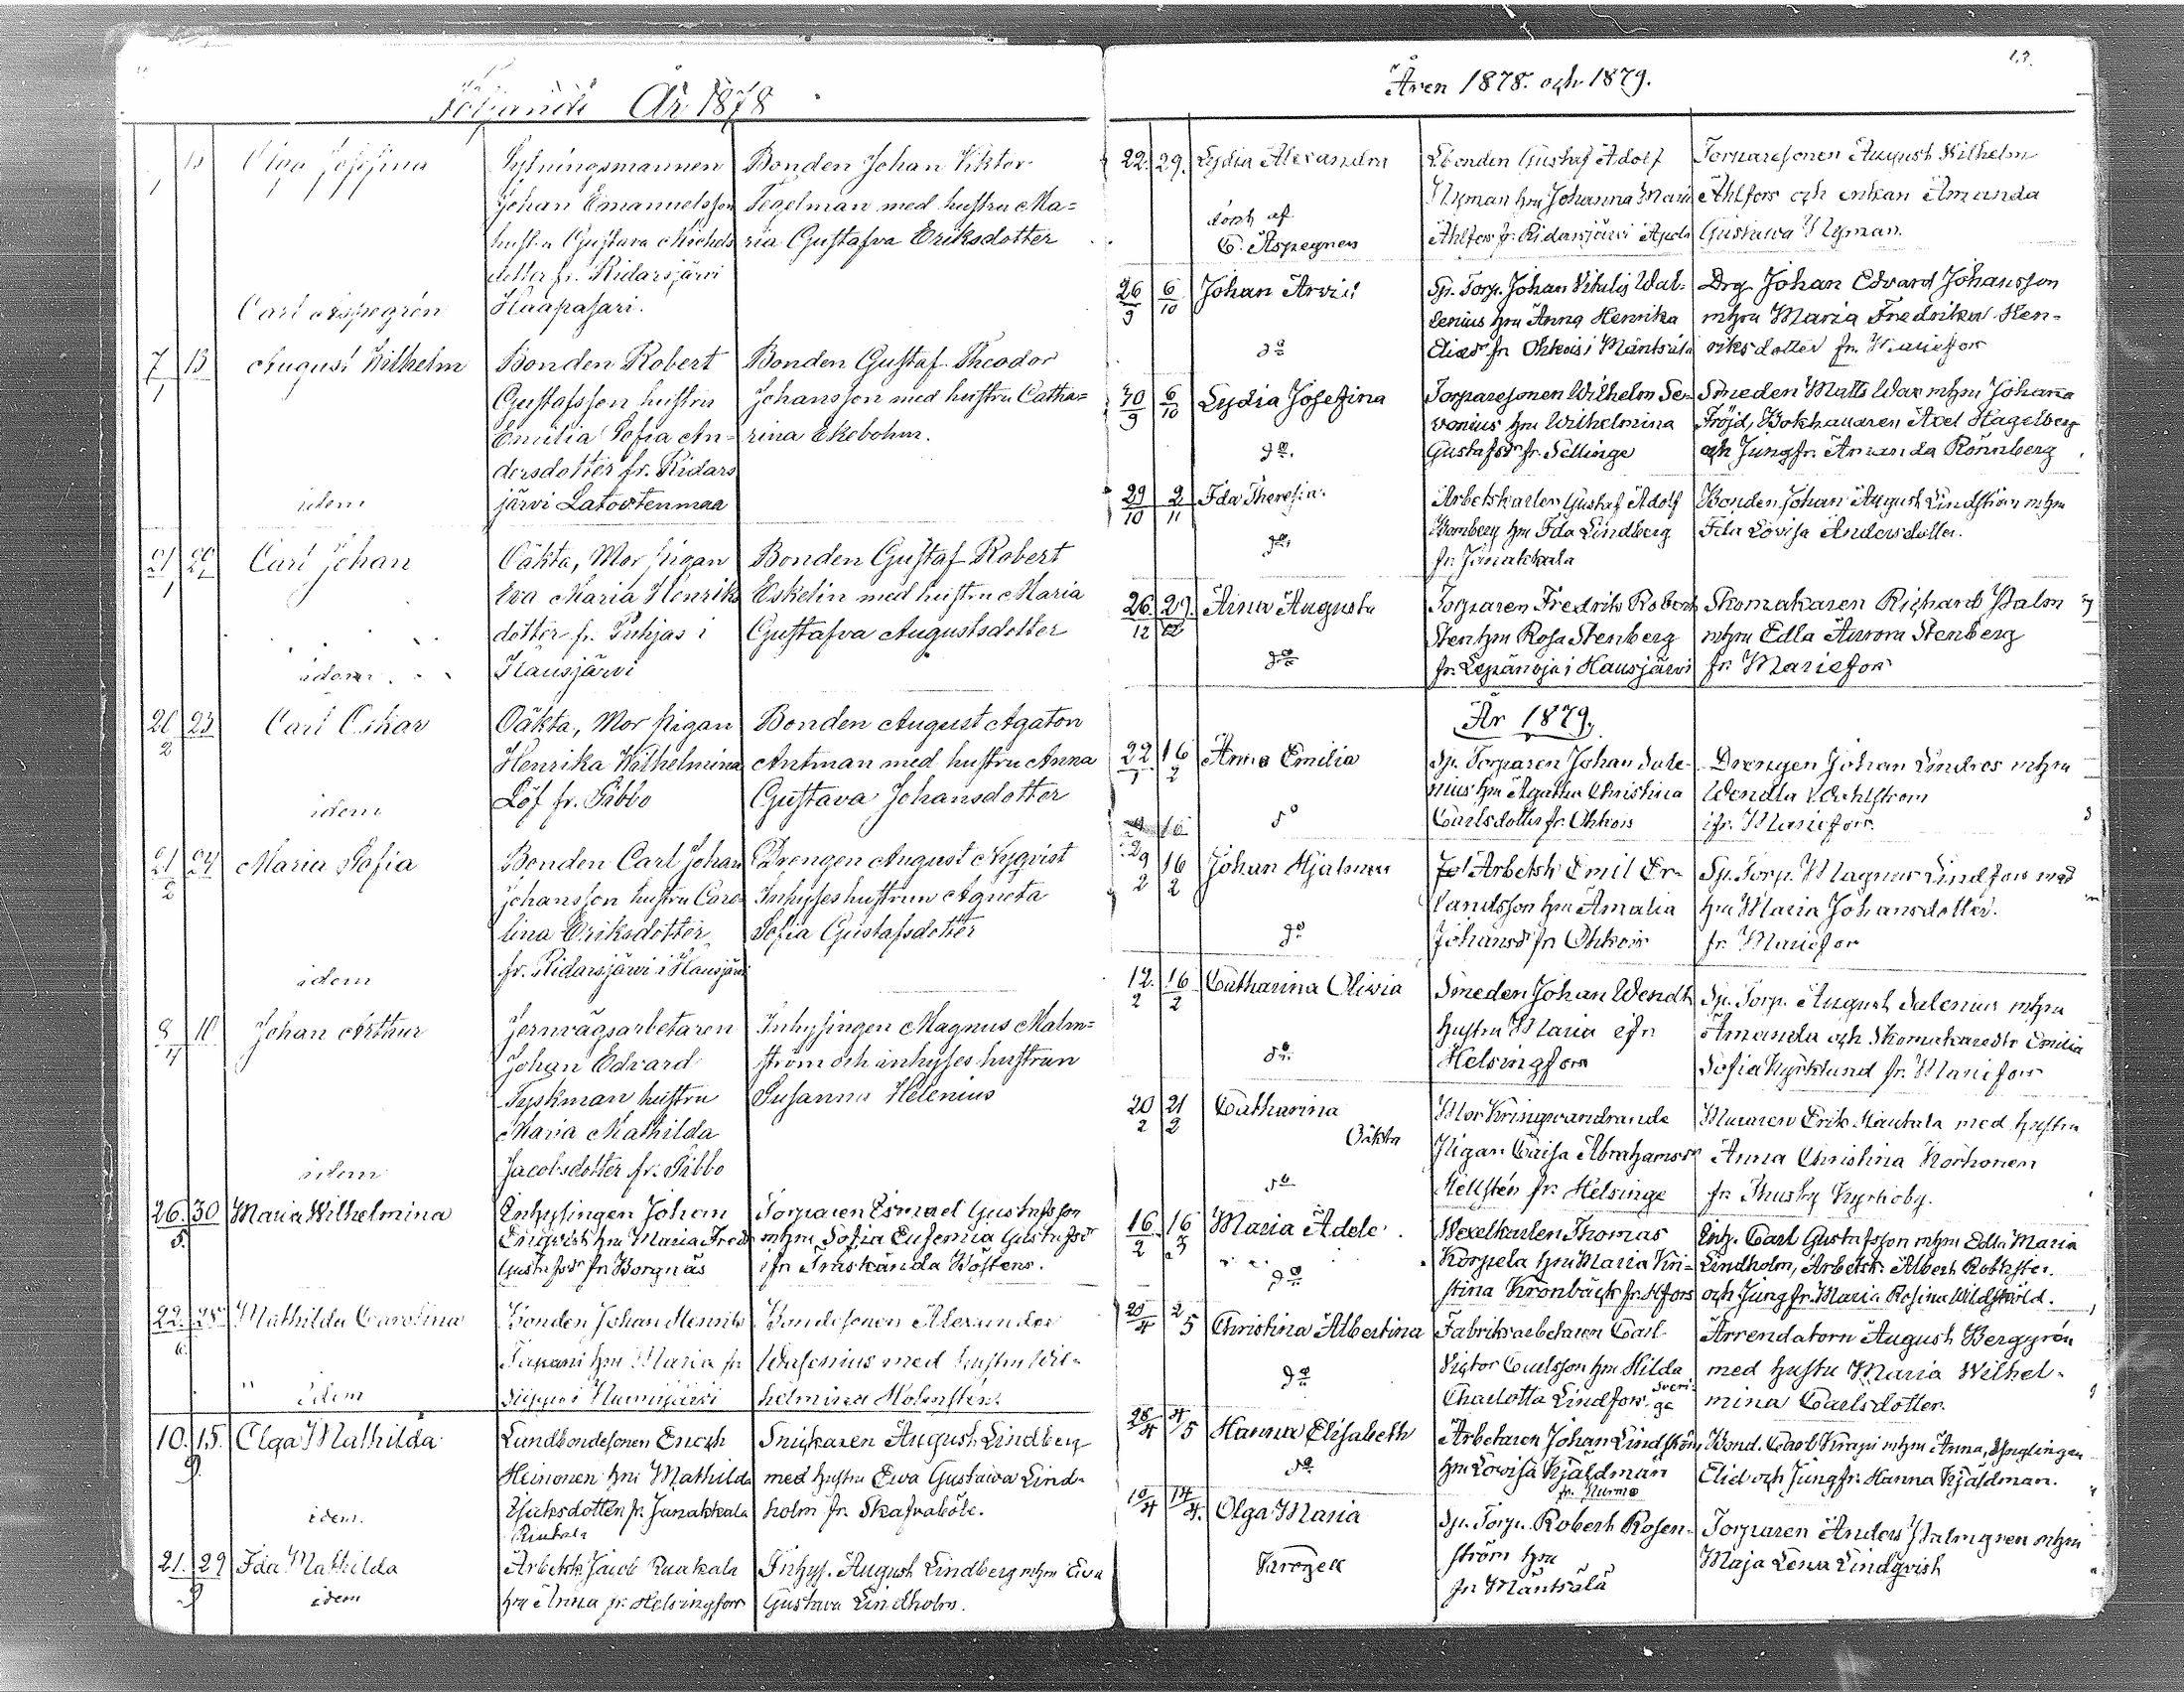 År 1878
13 Olga Josefina
Johan Emanuelsson
hust.u Gustava Michels
dotter fr. Ridarsjärvi
Haapasari.
Bonden Johan Viktor
Tegelman med hustru Ma=
ria Gustafva Eriksdotter
Carl Aspegrén
7/1 13 August Wilhelm
Bonden Robert
Gustafsson hustru
Emilia Sofia An=
dersdotter fr. Ridars
järvi Latostenmaa
Bonden Gustaf Theodor
Johansson med hustru Catha=
rina Ekebohm.
idem
21/1 Carl Johan
Oäkta, Mor pigan
Eva Maria Henriks
dotter fr. Puhjas i
Hausjärvi
Bonden Gustaf Robert
Eskelin med hustru Maria
Gustafva Augustsdotter
idem
2 23 Carl Oskar
Oäkta, Mor pigan
Henrika Wilhelmina
Löf fr. Sibbo
Bonden August Agaton
Antman med hustru Anna
Gustava Johansdotter
idem
21/2 24 Maria Sofia
Bonden Carl Johan
Johansson hustru Caro=
lina Eriksdotter
fr. Ridarsjärvi i Hausjärvi
Drengen August Nyqvist
Inhyseshustrun Agneta
Sofia Gustafsdotter
idem
8/4 10 Johan Arthur
Jernvägsarbetaren
Johan Edvard
Tyskman hustru
Maria Mathilda
Jacobsdotter fr. Sibbo
Inhysingen Magnus Malm=
ström och inhyses hustrun
Susanna Helenius
idem
26. 30/5. Maria Wilhelmina
Enhysingen Johan
Enqvist hru Maria Fred
Gustafsdr fr Borgnäs
Torparen Esmael Gustafsson
mhru Sofia Eufemia Gustafsdr
ifr Träskända Böstens.
22. 25/6 Mathilda Carolina
Bonden Johan Henrik
Tapani hru Maria fr
Bondesonen Alexander
Wasenius med hustru Wil=
helmina Holmstén.
idem
10. 15./9. Olga Mathilda
Landbondesonen Enoch
Heinonen hru Mathilda
fr. Janakkala
Snickaren August Lindberg
med hustru Ewa Gustawa Lind=
holm fr. Skafvaböle.
idem.
21. 29/9 Ida Mathilda
Arbetsk Jacob Ruakala
hru Anna fr. Helsingfors
Inhys. August Lindberg mhru Ewa
Gustava Lindholm.
idem
Åren 1878. och 1879.
13.
22. 29. Lydia Alexandra
döpt af
C. Aspegren
Lbonden Gustaf Adolf
Nyman hru Johanna Maria
Ahlfors fr. Ridarsjärvi
Torparesonen August Wilhelm
Ahlfors och enkan Amanda
Gustawa Nyman.
26/9 6/10 Johan Arvid
do
Sp. Torp. Johan Vitalis Wal-
lenius hru Anna Henrika
fr Ohkois i Mäntsälä
Drg. Johan Edvard Johansson
mhru Maria Fredrika Hen-
riksdotter fr. Mariefors
30/9 6/10 Lydia Josefina
do.
Torparesonen Wilhelm Se-
vonius hru Wilhelmina
Gustafsdr fr. Sellinge
Smeden Matts Wax mhru Johanna
Fröjd, Bokhållaren Axel Hagelberg
och Jungfr. Amanda Rönnberg
29/10 2/11 Ida Theresia.
do.
Arbetskarlen Gustaf Adolf
Bomberg hru Ida Lindberg
fr. Janakkala
Bonden Johan August Lindström mhru
Ida Lovisa Andersdotter.
26./12 29./12 Aina Augusta
do
Torparen Fredrik Robert
Sten hru Rosa Stenberg
fr. Lepänoja i Hausjärvi
Skomakaren Richard Malm
mhru Edla Aurora Stenberg
fr. Mariefors
År 1879.
22/1 16/2 Anna Emilia
do
Sp. Torparen Johan Sale-
nius hru Agatha Christina
Carlsdotter fr. Ohkois
Drengen Johan Lindros mhru
Wendla Wahlstrom
ifr. Mariefors.
16
29 16/2 Johan Hjalmar
do
Arbetsk Emil Er-
landsson hru Amalia
Johansdr fr Ohkois
Sp. Torp. Magnus Lindfors med
hru Maria Johansdotter.
fr. Mariefors
12./2 16/2 Catharina Oliwia
do.
Smeden Johan Wendt
hustru Maria ifr
Helsingfors
Sp. Torp. August Salenius mhru
Amanda och Skomakaredtr Emilia
Sofia Kyrklund fr. Mariefors
20/2 21/2 Catharina
Oäkta
do
Mor Kringvandrande
Pigan Caisa Abrahamsdr
Hellstén fr. Helsinge
Muraren Erik Hautala med hustru
Anna Christina Korhonen
fr. Thusby Kyrkoby.
16/2 16/3 Maria Adele.
do
Wexelkarlen Thomas
Korpela hru Maria Kri-
stina Kronbäck fr. Hfors
Enh. Carl Gustafsson mhru Edla Maria
Lindholm, Arbetsk. Albert
och Jungfr. Maria Rosina Wildsköld.
20/4 2/5 Christina Albertina
do
Fabriksarbetaren Carl
Victor Carlsson hru Hilda
Charlotta Lindfors. Sveri-
ge
Arrendatorn August Berggrén
med hustru Maria Wilhel-
mina Carlsdotter.
28/4 4/5 Hanna Elisabeth
do
Arbetaren Johan Lindström
hru Lowisa Kjäldman
fr. Nurmo
Bond. Carl Krapi mhru Anna, Ynglingen
Elid och Jungfr. Hanna Kjäldman.
10/4 14/4. Olga Maria
Sp. Torp. Robert Rosen-
ström hru
fr Mäntsälä
Torparen Anders Malmgren mhru
Maja Lena Lindqvist